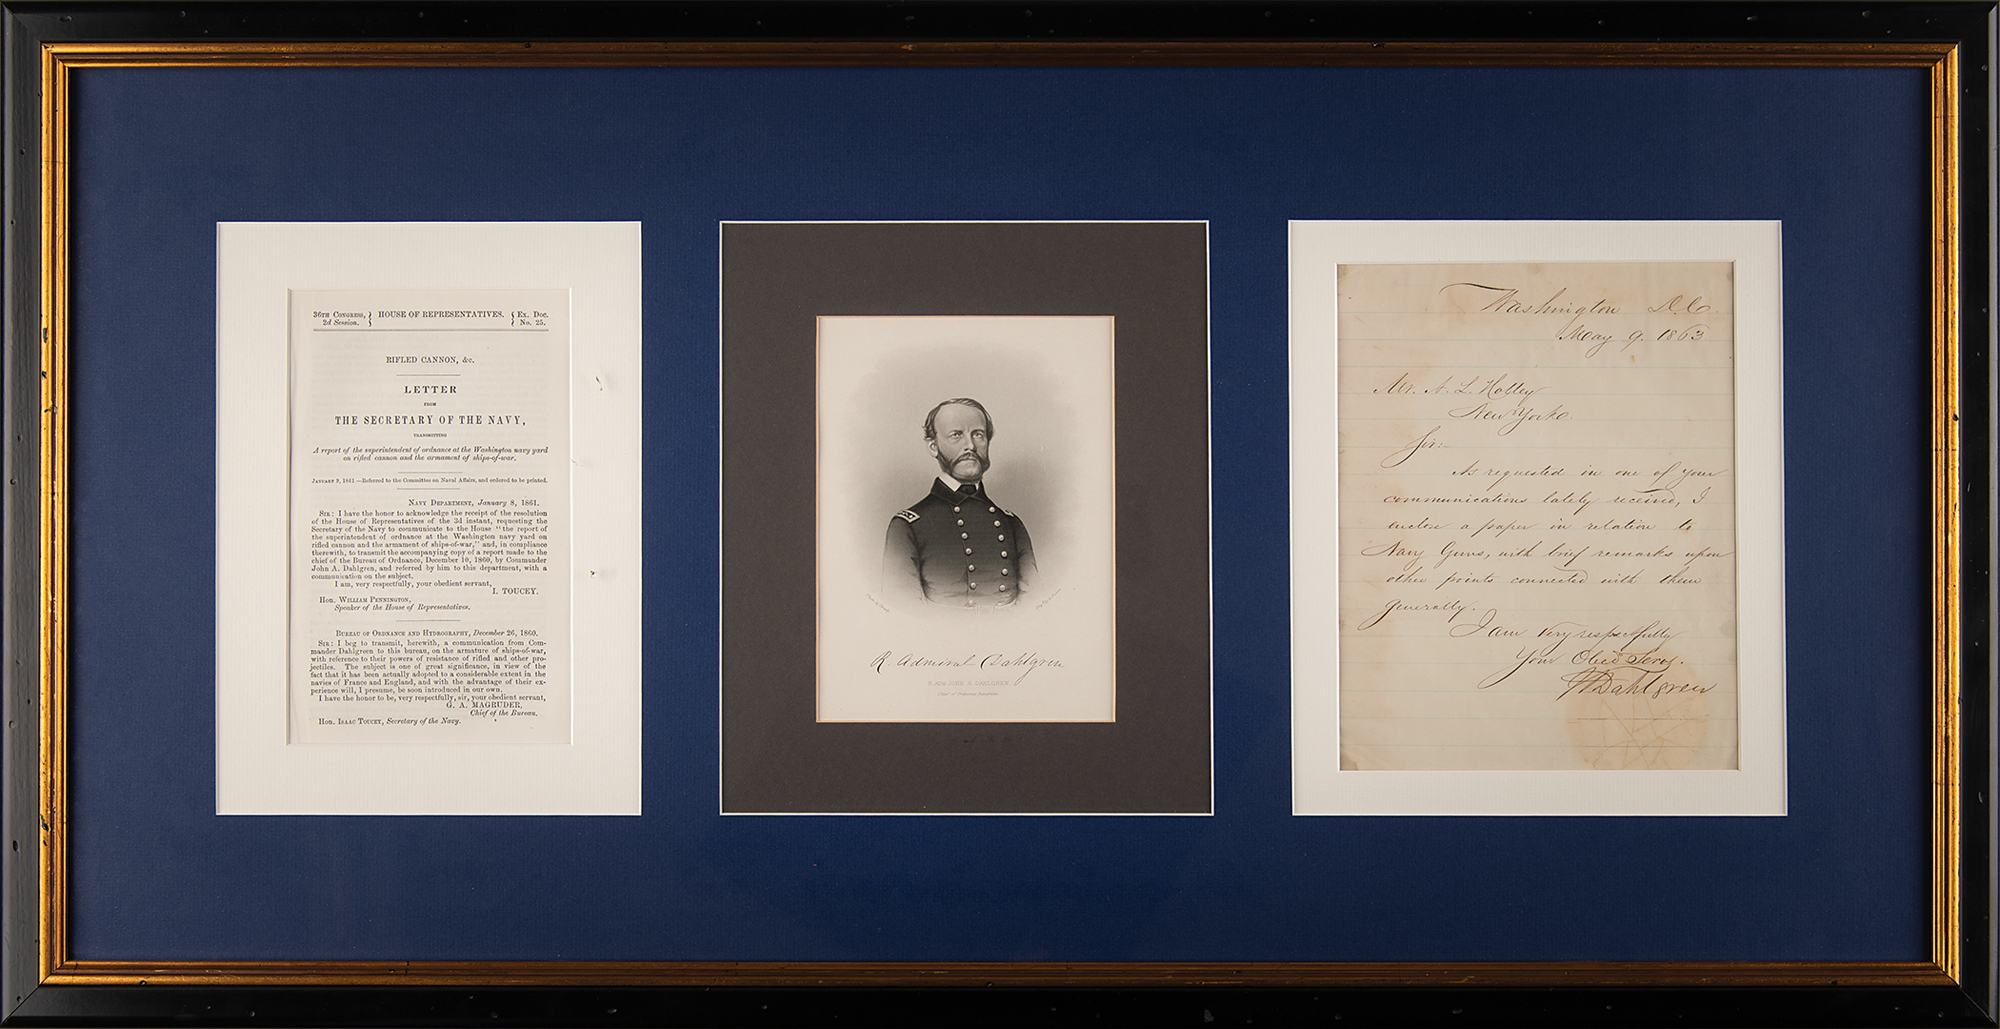 36TH CONGRESS, } HOUSE OF REPRESENTATIVES. { Ex. Doc.
2d Session. } { No. 25.
RIFLED CANNON, &c.
LETTER
FROM
THE SECRETARY OF THE NAVY,
TRANSMITTING
A report of the superintendent of ordnance at the Washington navy yard
on rifled cannon and the armament of ships-of-war.
JANUARY 9, 1861.—Referred to the Committee on Naval Affairs, and ordered to be printed.
NAVY DEPARTMENT, January 8, 1861.
SIR: I have the honor to acknowledge the receipt of the resolution
of the House of Representatives of the 3d instant, requesting the
Secretary of the Navy to communicate to the House "the report of
the superintendent of ordnance at the Washington navy yard on
rifled cannon and the armament of ships-of-war," and, in compliance
therewith, to transmit the accompanying copy of a report made to the
chief of the Bureau of Ordnance, December 10, 1860, by Commander
John A. Dahlgren, and referred by him to this department, with a
communication on the subject.
I am, very respectfully, your obedient servant,
I. TOUCEY.
Hon. WILLIAM PENNINGTON,
Speaker of the House of Representatives.
BUREAU OF ORDNANCE AND HYDROGRAPHY, December 26, 1860.
SIR: I beg to transmit, herewith, a communication from Com-
mander Dahlgren to this bureau, on the armature of ships-of-war,
with reference to their powers of resistance of rifled and other pro-
jectiles. The subject is one of great significance, in view of the
fact that it has been actually adopted to a considerable extent in the
navies of France and England, and with the advantage of their ex-
perience will, I presume, be soon introduced in our own.
I have the honor to be, very respectfully, sir, your obedient servant,
G. A. MAGRUDER,
Chief of the Bureau.
Hon. ISAAC TOUCEY, Secretary of the Navy.
R. Admiral Dahlgren
R. ADM. JOHN A. DAHLGREN.
Chief of Ordnance
Washington D.C.
May 9. 1863
Mr. A. L. Holley
New Yorke
Sir:
As requested in one of your
communications lately received, I
enclose a paper in relation to
Navy Guns, with brief remarks upon
other points connected with them
generally.
I am Very respectfully
Your Obed Serv.
Dahlgren